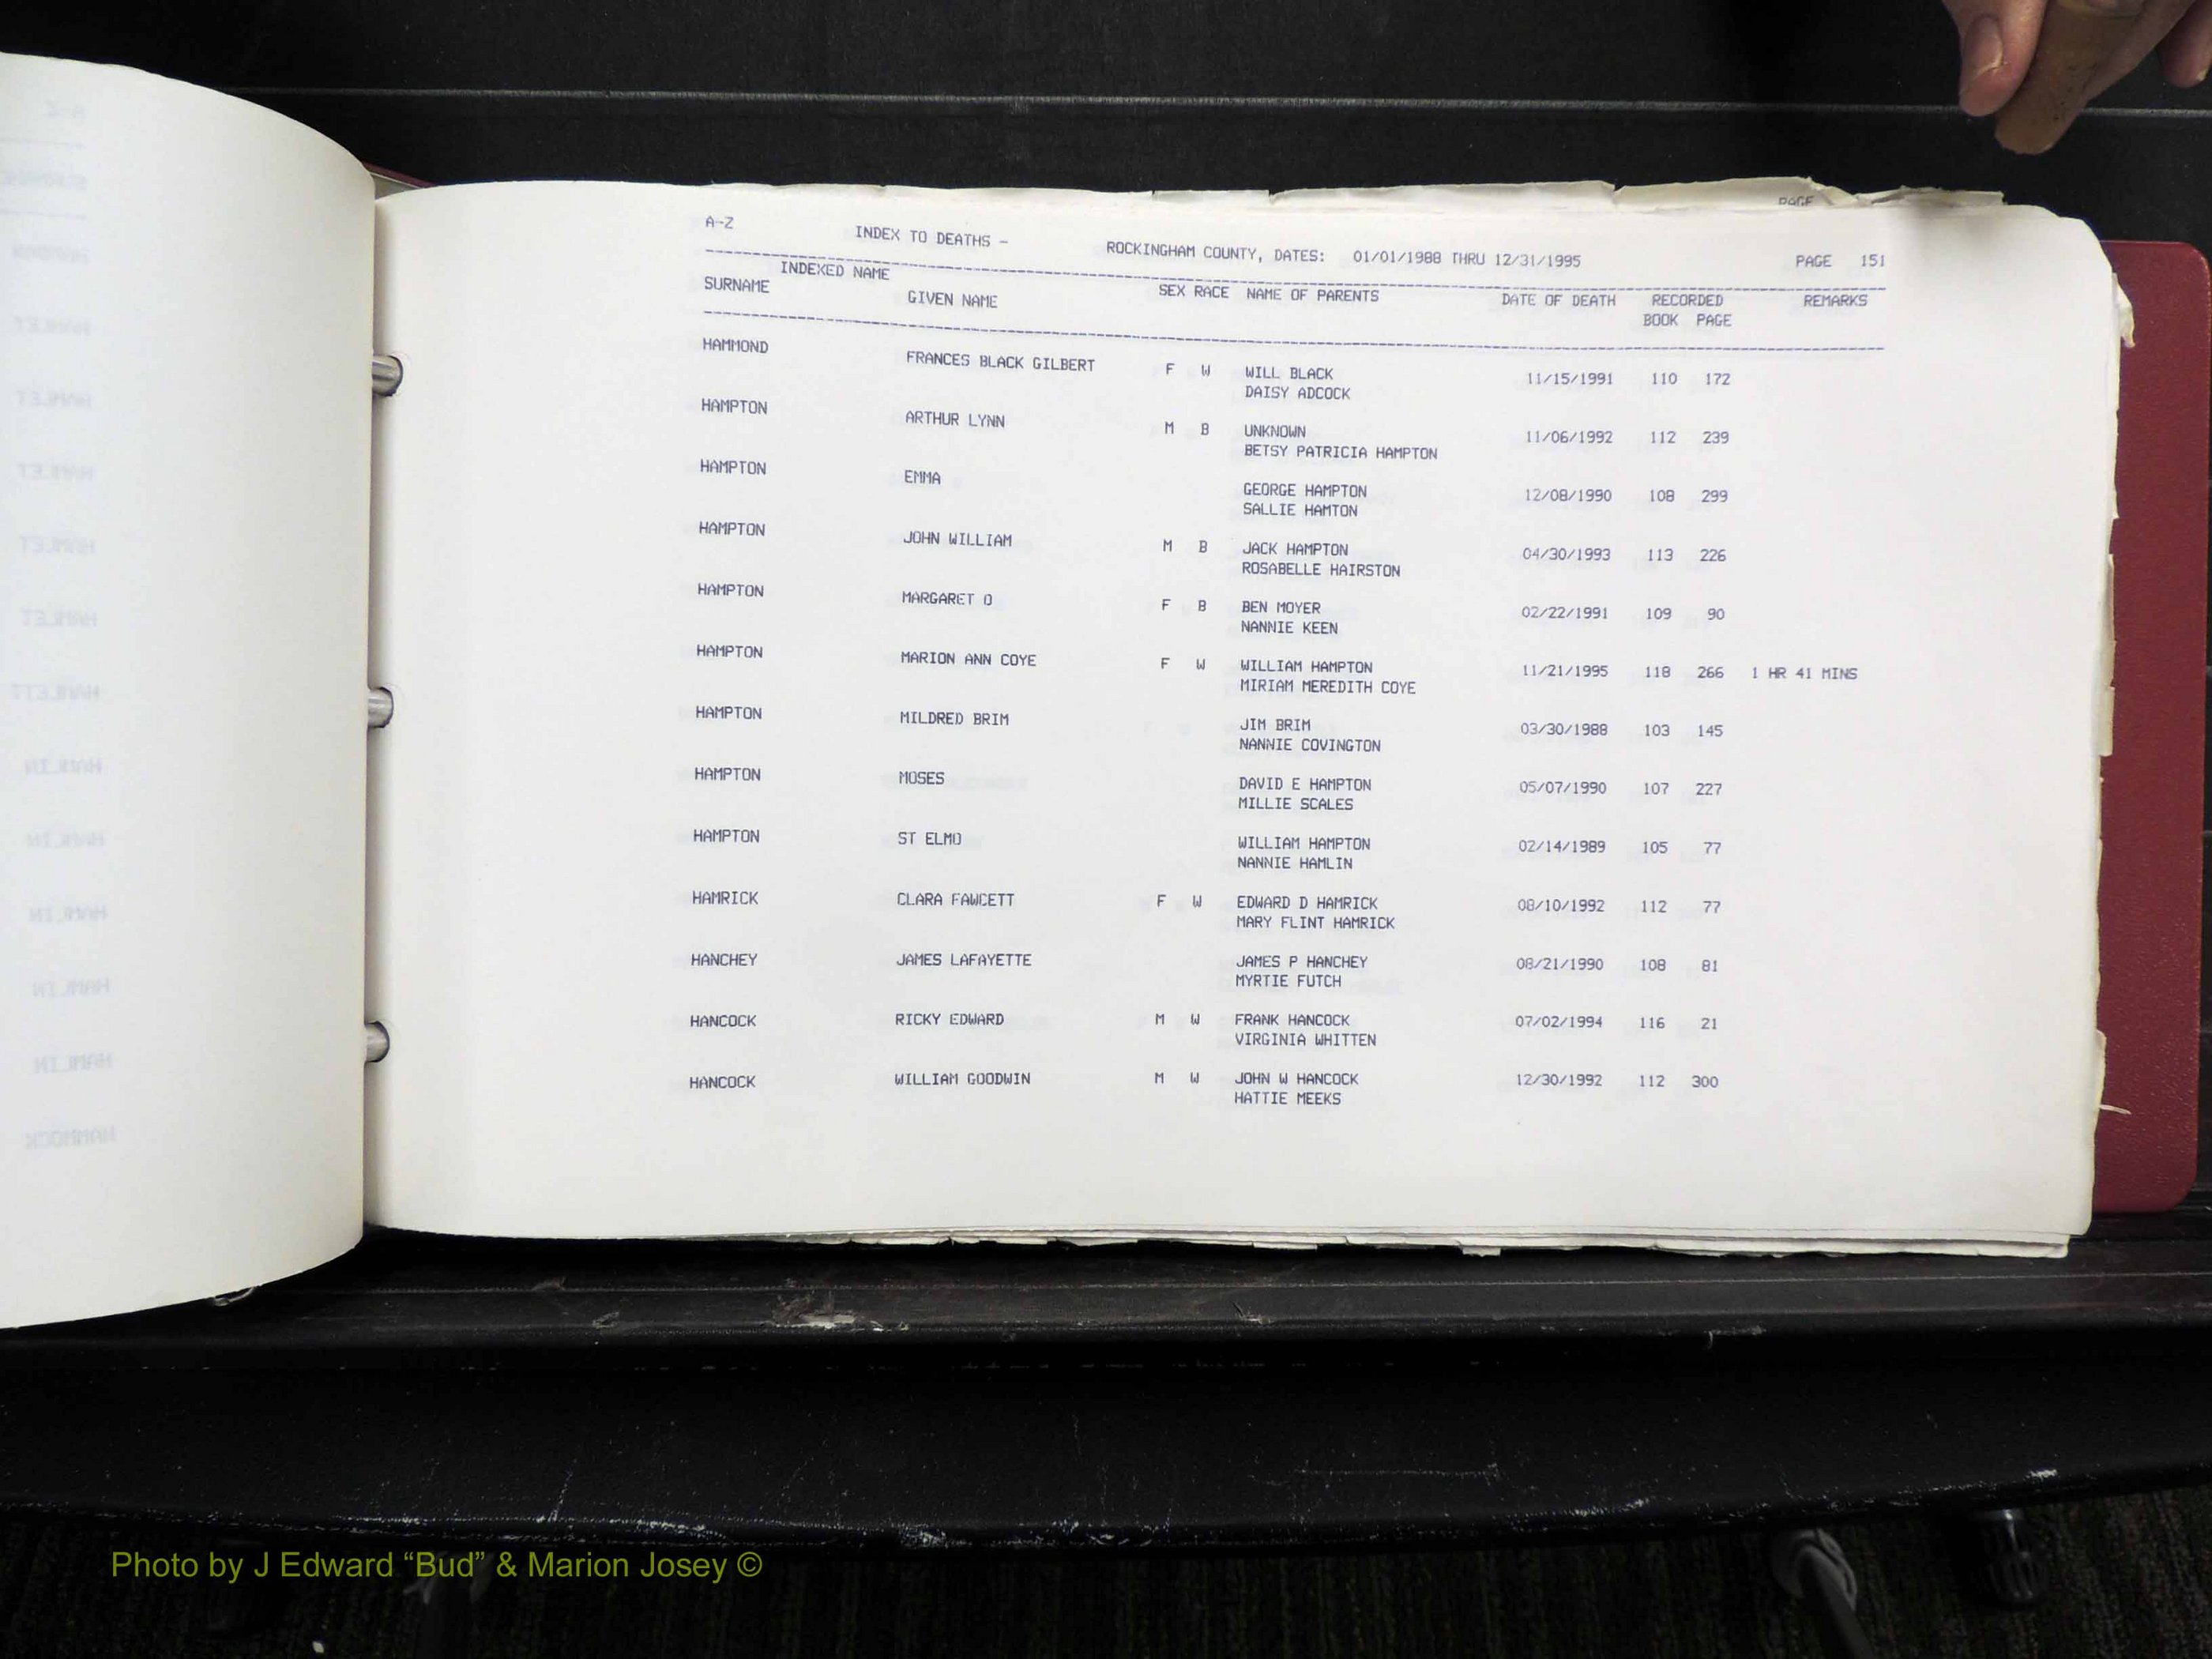 PAGE
A-Z INDEX TO DEATHS - ROCKINGHAM COUNTY, DATES: 01/01/1988 THRU 12/31/1995 PAGE 151
INDEXED NAME
SURNAME GIVEN NAME SEX RACE NAME OF PARENTS DATE OF DEATH RECORDED REMARKS
BOOK PAGE
HAMMOND FRANCES BLACK GILBERT F W WILL BLACK 11/15/1991 110 172
DAISY ADCOCK
HAMPTON ARTHUR LYNN M B UNKNOWN 11/06/1992 112 239
BETSY PATRICIA HAMPTON
HAMPTON EMMA GEORGE HAMPTON 12/08/1990 108 299
SALLIE HAMTON
HAMPTON JOHN WILLIAM M B JACK HAMPTON 04/30/1993 113 226
ROSABELLE HAIRSTON
HAMPTON MARGARET O F B BEN MOYER 02/22/1991 109 90
NANNIE KEEN
HAMPTON MARION ANN COYE F W WILLIAM HAMPTON 11/21/1995 118 266 1 HR 41 MINS
MIRIAM MEREDITH COYE
HAMPTON MILDRED BRIM JIM BRIM 03/30/1988 103 145
NANNIE COVINGTON
HAMPTON MOSES DAVID E HAMPTON 05/07/1990 107 227
MILLIE SCALES
HAMPTON ST ELMO WILLIAM HAMPTON 02/14/1989 105 77
NANNIE HAMLIN
HAMRICK CLARA FAWCETT F W EDWARD D HAMRICK 08/10/1992 112 77
MARY FLINT HAMRICK
HANCHEY JAMES LAFAYETTE JAMES P HANCHEY 08/21/1990 108 81
MYRTIE FUTCH
HANCOCK RICKY EDWARD M W FRANK HANCOCK 07/02/1994 116 21
VIRGINIA WHITTEN
HANCOCK WILLIAM GOODWIN M W JOHN W HANCOCK 12/30/1992 112 300
HATTIE MEEKS
Photo by J Edward “Bud” & Marion Josey ©